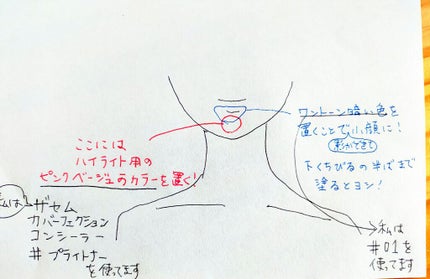 ワントーン暗い色を
置くことで小顔に!
影ができて
下くちびるの半ばまで
塗るとヨシ!
ここには
ハイライト用の
ピンクベージュのカラーを置く!
私は
ザセム
カバーパーフェクション
コンシーラー
# ブライトナー
を使ってます
私は
#01を
使ってます